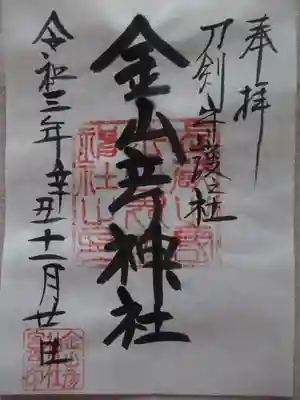 奉拝
刀剣守護之社
金山彦神社
令和三年辛丑十一月廿